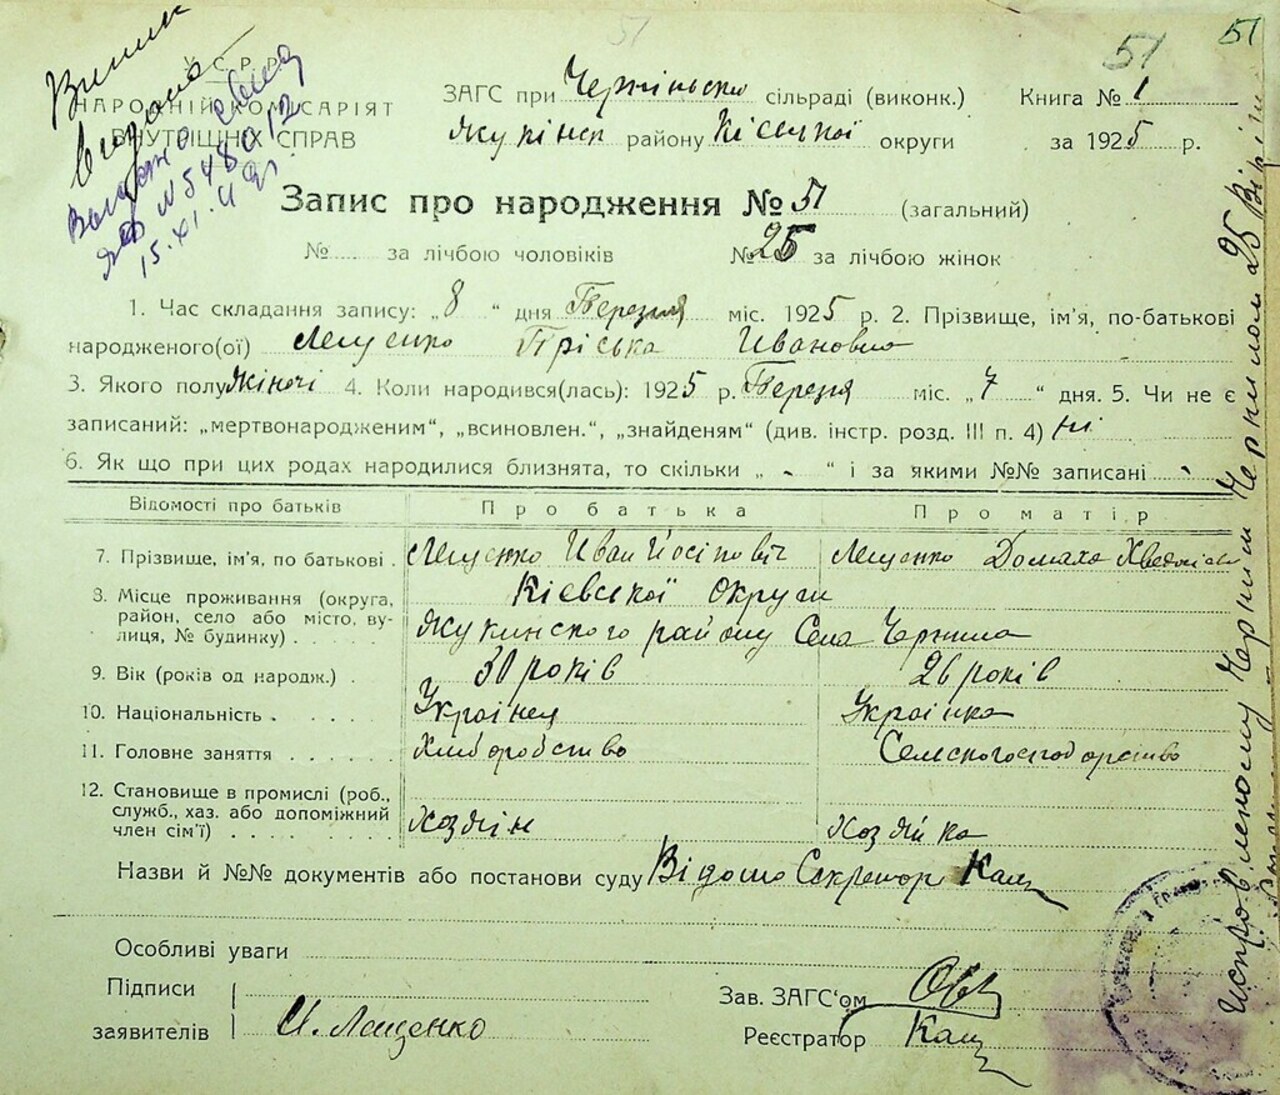 51
51
51
Випис
видано
Выдано свид
ЯФ № 548012
15.XI.41 г.
У.С.Р.Р.
НАРОДНІЙ КОМІСАРІЯТ
ВНУТРІШНІХ СПРАВ
ЗАГС при сільраді (виконк.) Книга № 1
району Київської округи за 1925 р.
Запис про народження № 51 (загальний)
№ за лічбою чоловіків № 25 за лічбою жінок
1. Час складання запису: „8 “ дня Березня міс. 1925 р. 2. Прізвище, ім'я, по-батькові
народженого(ої) Лещенко Пріська Ивановна
3. Якого полу Жіночі 4. Коли народився(лась): 1925 р. Березня міс. „ 7 “ дня. 5. Чи не є
записаний: „мертвонародженим“, „всиновлен.“, „знайденям“ (див. інстр. розд. III п. 4) Ні
6. Як що при цих родах народилися близнята, то скільки „ - “ і за якими №№ записані
Відомості про батьків Про батька Про матір
7. Прізвище, ім'я, по батькові . Лещенко Иван Йосіповіч Лещенко Домаха
8. Місце проживання (округа, Кіевской Округи
район, село або місто, ву-
лиця, № будинку) . . . . району Села
9. Вік (років од народж.) . 30 років 26 років
10. Національність . . . . . Українец Українка
11. Головне заняття . . . . . . Хліборобство
12. Становище в промислі (роб.,
служб., хаз. або допоміжний
член сім'ї) . . . . . . . . Хозяїн Хозяйка
Назви й №№ документів або постанови суду Відомо Секретар
Особливі уваги
Підписи
заявителів И. Лещенко
Зав. ЗАГС'ом
Реєстратор
Исправленому Черним Чернилом 25 Вірить